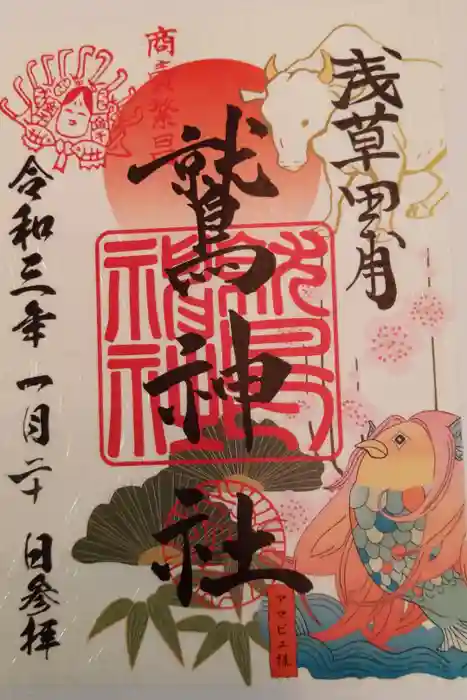 浅草田甫
商賣繁昌
鷲神社
令和三年 一月二十日参拝
アマビエ様